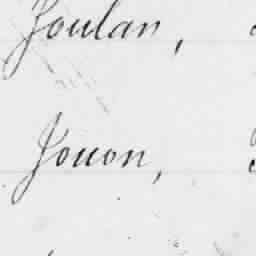 Joulan,
Jouon,